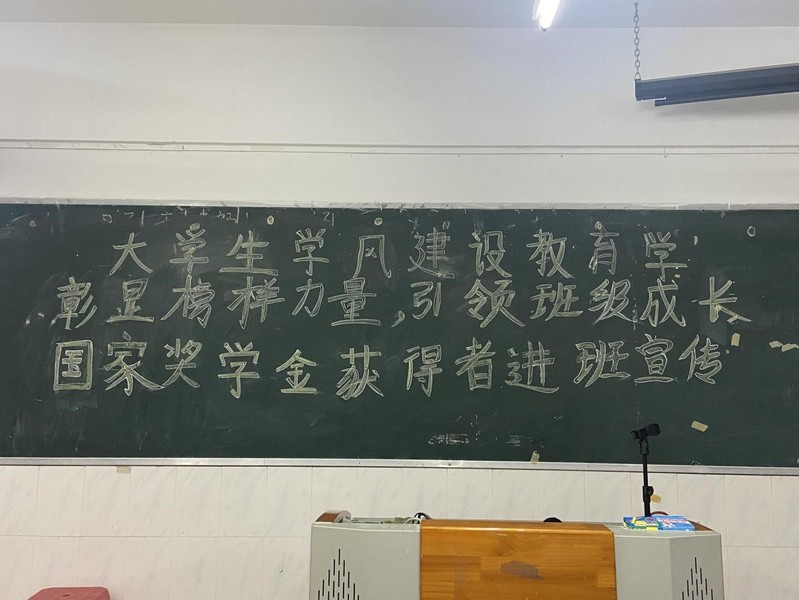 大学生学风建设教育学
彰显榜样力量,引领班级成长
国家奖学金获得者进班宣传